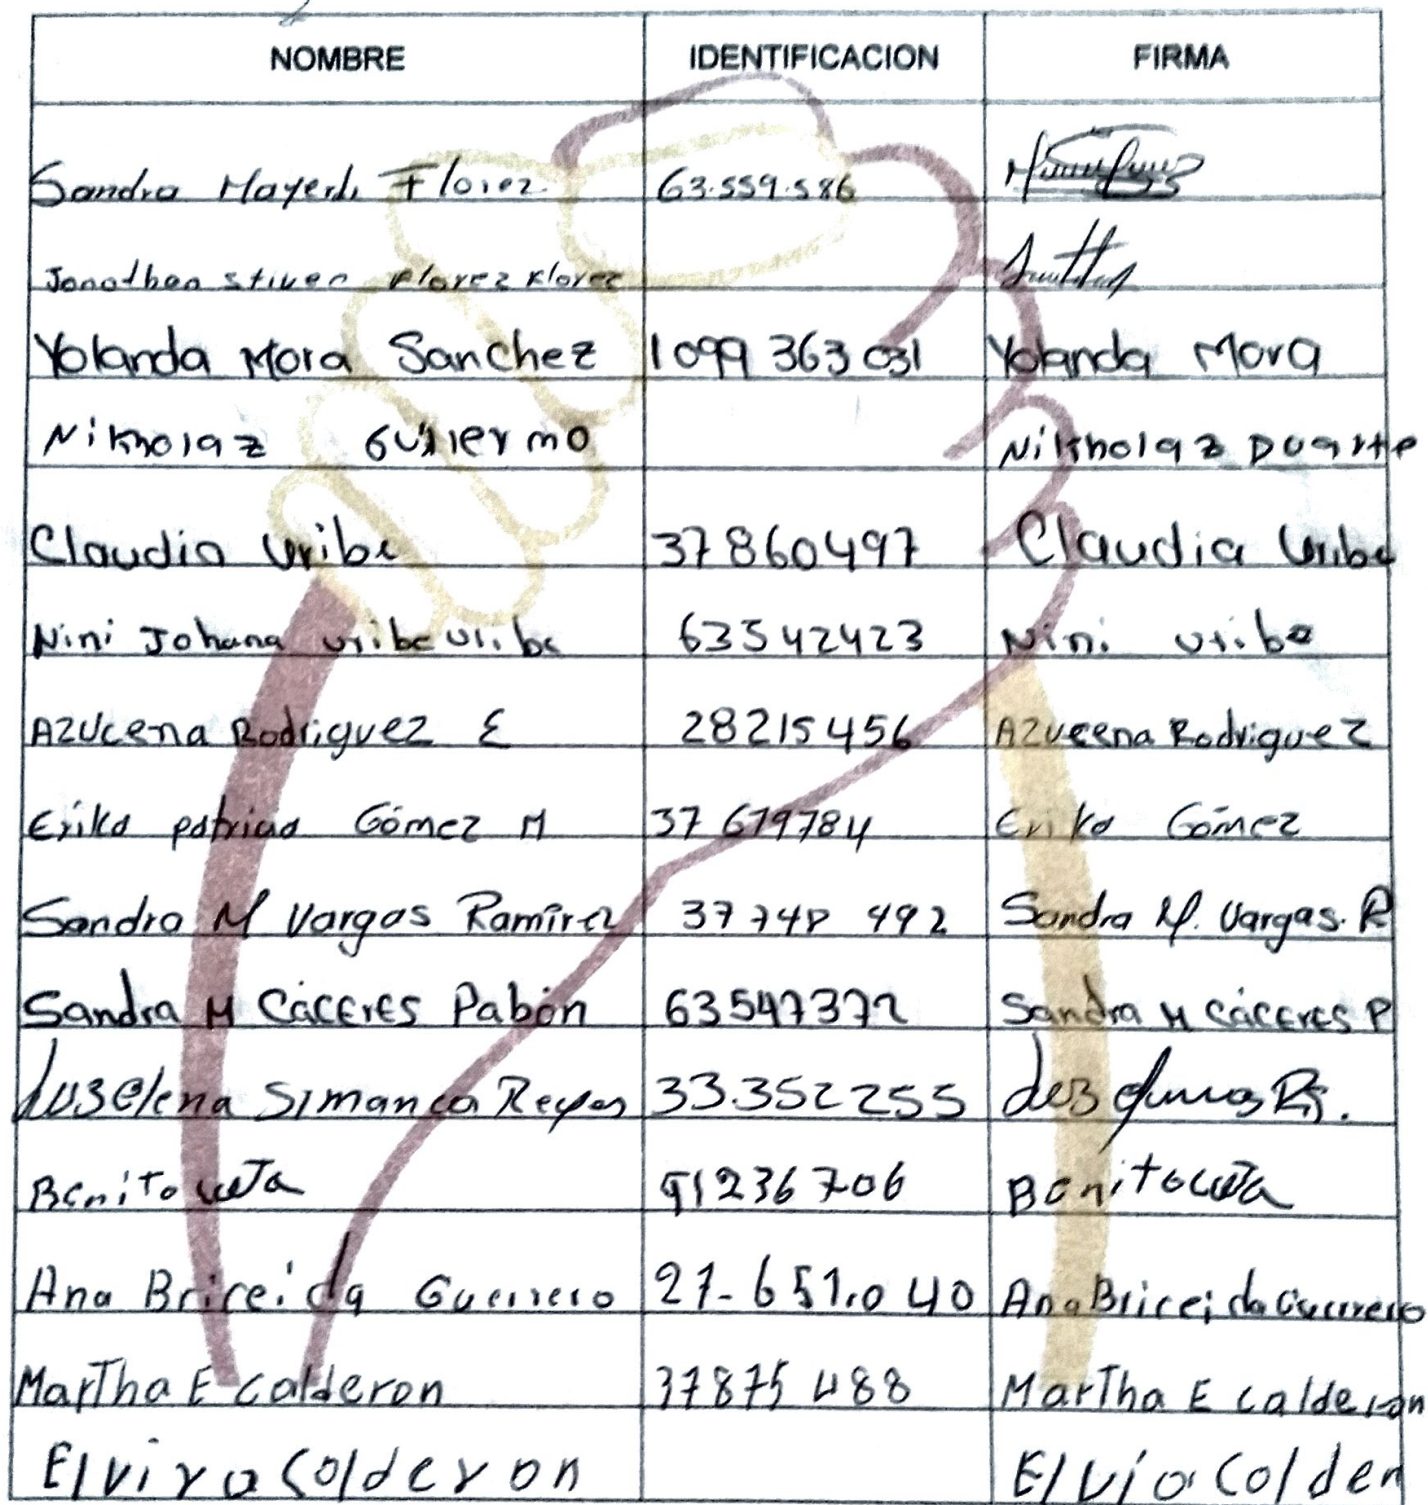 NOMBRE IDENTIFICACION FIRMA
Sandra Mayerli Florez 63.559.586
Jonathan stiven Florez Florez
Yolanda Mora Sanchez 1099 363 031 Yolanda Mora
Nikholaz Guillermo Nikholaz Duarte
Claudia Uribe 37860497 Claudia Uribe
Nini Johana Uribe Uribe 63542423 Nini Uribe
Azucena Rodriguez E 28215456 Azucena Rodriguez
Erika patricia Gómez M 37679784 Erika Gómez
Sandra M Vargas Ramirez 37748 492 Sandra M. Vargas. R
Sandra M Cáceres Pabón 63547372 Sandra M Cáceres P
Luzelena Simanca Reyes 33.352255
Benito 91236706 Benito
Ana Briceida Guerrero 27-651.040 Ana Briceida Guerrero
Martha E Calderon 37875488 Martha E Calderon
Elvira Colderon Elvia Colder